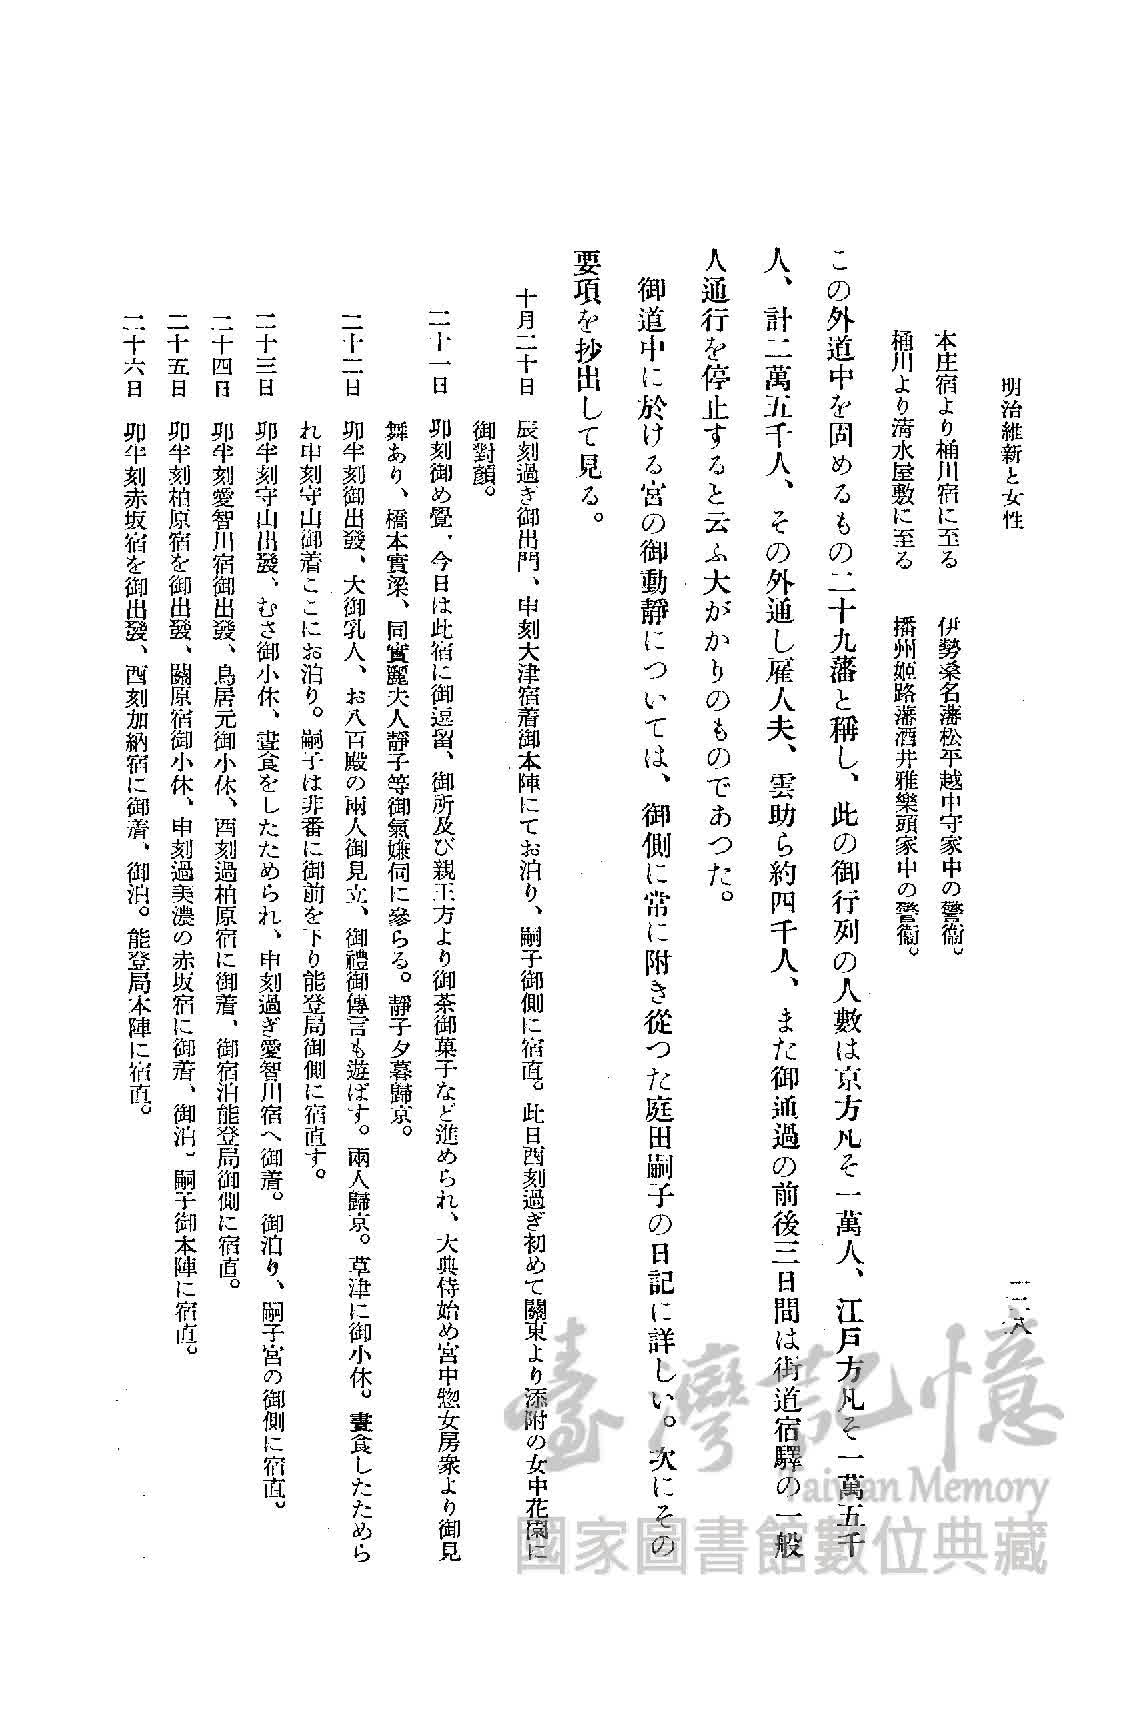 明治維新と女性
一三八
本庄宿より桶川宿に至る　伊勢桑名藩松平越中守家中の警衞。
桶川より淸水屋敷に至る　播州姬路藩酒井雅樂頭家中の警衞。
この外道中を固めるもの二十九藩と稱し、此の御行列の人數は京方凡そ一萬人、江戸方凡そ一萬五千
人、計二萬五千人、その外通し雇人夫、雲助ら約四千人、また御通過の前後三日間は街道宿驛の一般
人通行を停止すると云ふ大がかりのものであつた。
御道中に於ける宮の御動靜については、御側に常に附き從つた庭田嗣子の日記に詳しい。次にその
要項を抄出して見る。
十月二十日　辰刻過ぎ御出門、申刻大津宿着御本陣にてお泊り、嗣子御側に宿直。此日酉刻過ぎ初めて關東より添附の女中花園に
御對顏。
二十一日　卯刻御め覺、今日は此宿に御逗留、御所及び親王方より御茶御菓子など進められ、大典侍始め宮中惣女房衆より御見
舞あり、橋本實梁、同實麗夫人靜子等御氣嫌伺に參らる。靜子夕暮歸京。
二十二日　卯半刻御出發、大御乳人、お八百殿の兩人御見立、御禮御傳言も遊ばす。兩人歸京。草津に御小休。晝食したためら
れ申刻守山御着ここにお泊り。嗣子は非番に御前を下り能登局御側に宿直す。
二十三日　卯半刻守山出發、むさ御小休、晝食をしたためられ、申刻過ぎ愛智川宿へ御着。御泊り、嗣子宮の御側に宿直。
二十四日　卯半刻愛智川宿御出發、鳥居元御小休、酉刻過柏原宿に御着、御宿泊能登局御側に宿直。
二十五日　卯半刻柏原宿を御出發、關原宿御小休、申刻過美濃の赤坂宿に御着、御泊、嗣子御本陣に宿直。
二十六日　卯半刻赤坂宿を御出發、酉刻加納宿に御着、御泊。能登局本陣に宿直。
臺灣記憶
Taiwan Memory
國家圖書館數位典藏